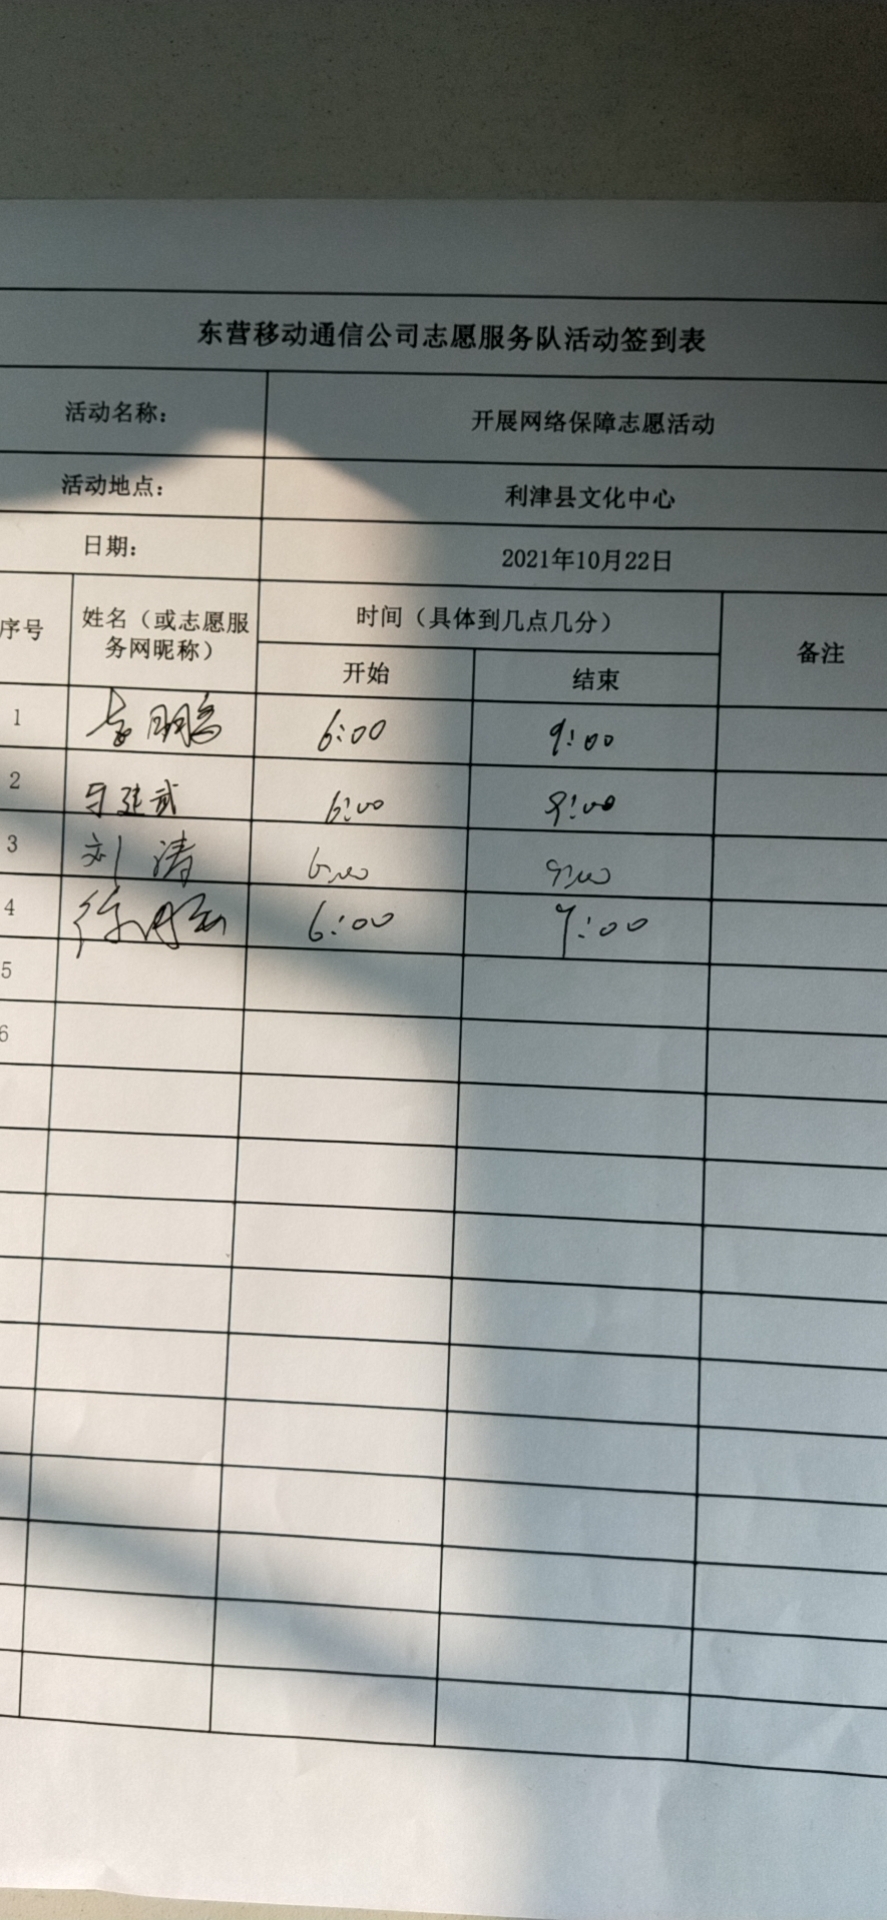 东营移动通信公司志愿服务队活动签到表
活动名称： 开展网络保障志愿活动
活动地点： 利津县文化中心
日期： 2021年10月22日
序号 姓名（或志愿服务网昵称） 时间（具体到几点几分） 备注
开始 结束
1 李鹏 6:00 9:00
2 建武 6:00 9:00
3 刘涛 6:00 9:00
4 徐 6:00 9:00
5
6